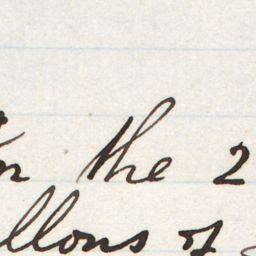 the 2
llons of